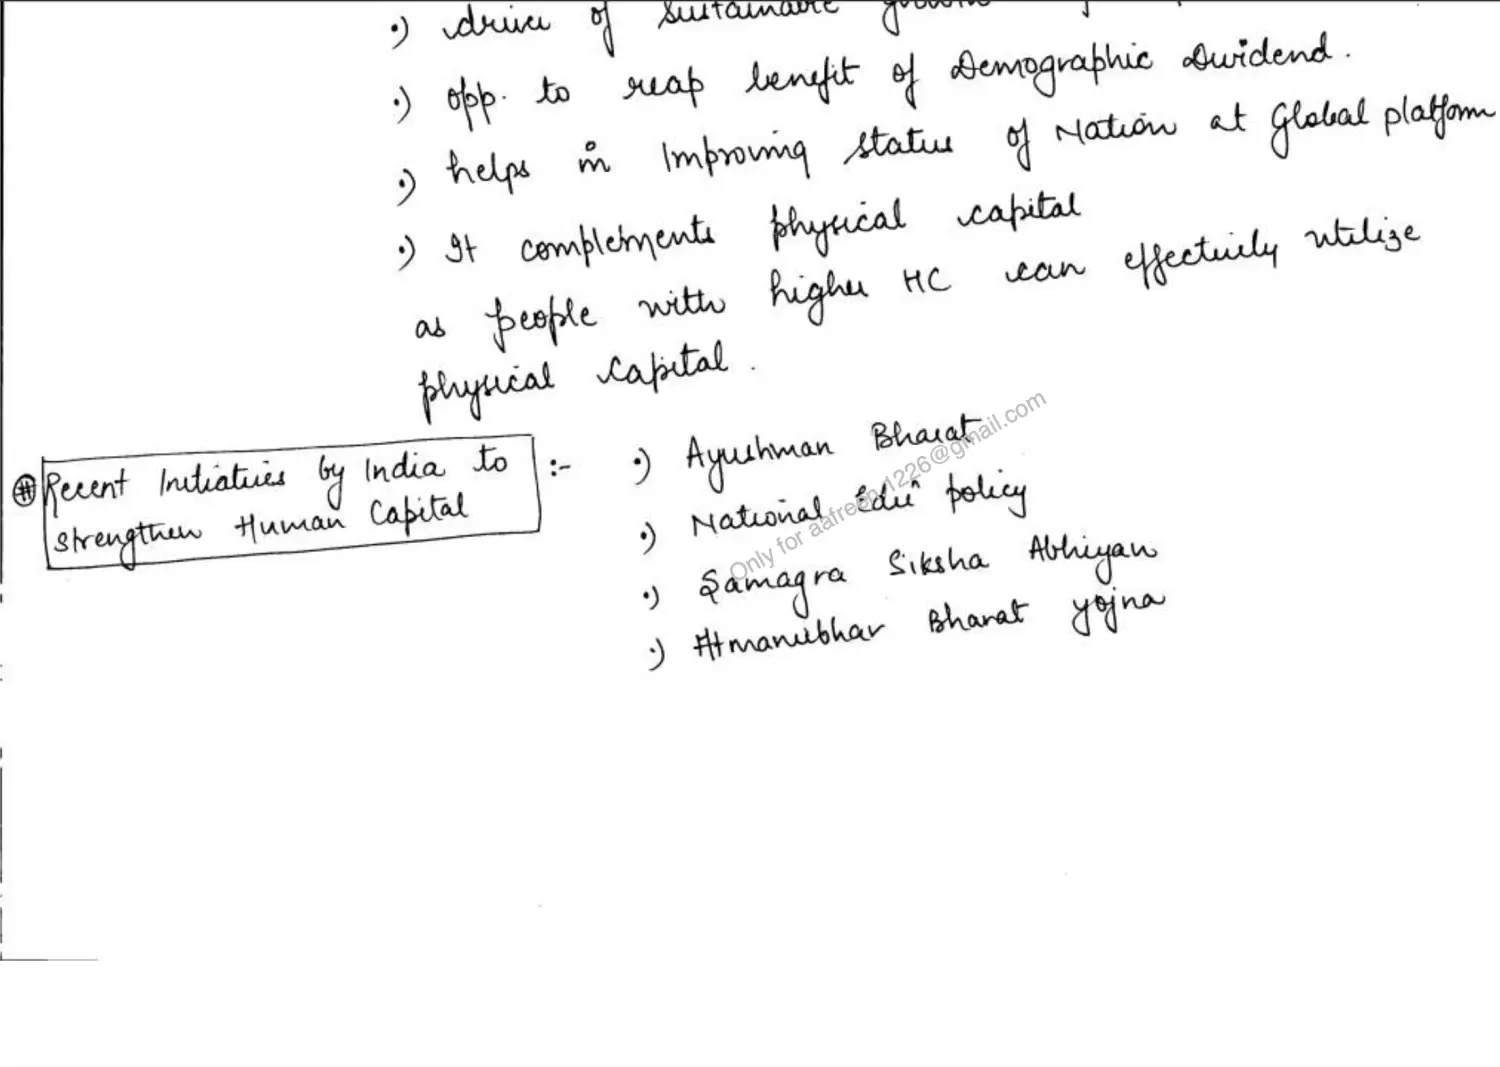 •) driver of sustainable growth
•) opp. to reap benefit of Demographic Dividend.
•) helps in Improving status of Nation at Global platform
•) It complements physical capital
as people with higher HC can effectively utilize
physical capital.
# Recent Initiatives by India to strengthen Human Capital :-
•) Ayushman Bharat
•) National Eduⁿ policy
•) Samagra Siksha Abhiyan
•) Atmanirbhar Bharat Yojna
Only for aafreen.1226@gmail.com